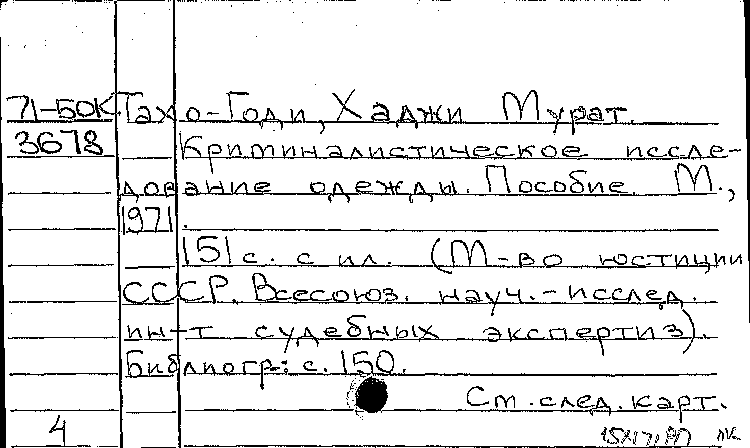 71-50К Тахо-Годи, Хаджи Мурат.
3678 Криминалистическое иссле-
дование одежды. Пособие. М.,
1971.
151 с. с ил. (М-во юстиции
СССР. Всесоюз. науч.-исслед.
ин-т судебных экспертиз).
Библиогр.: с. 150.
См. след. карт.
4